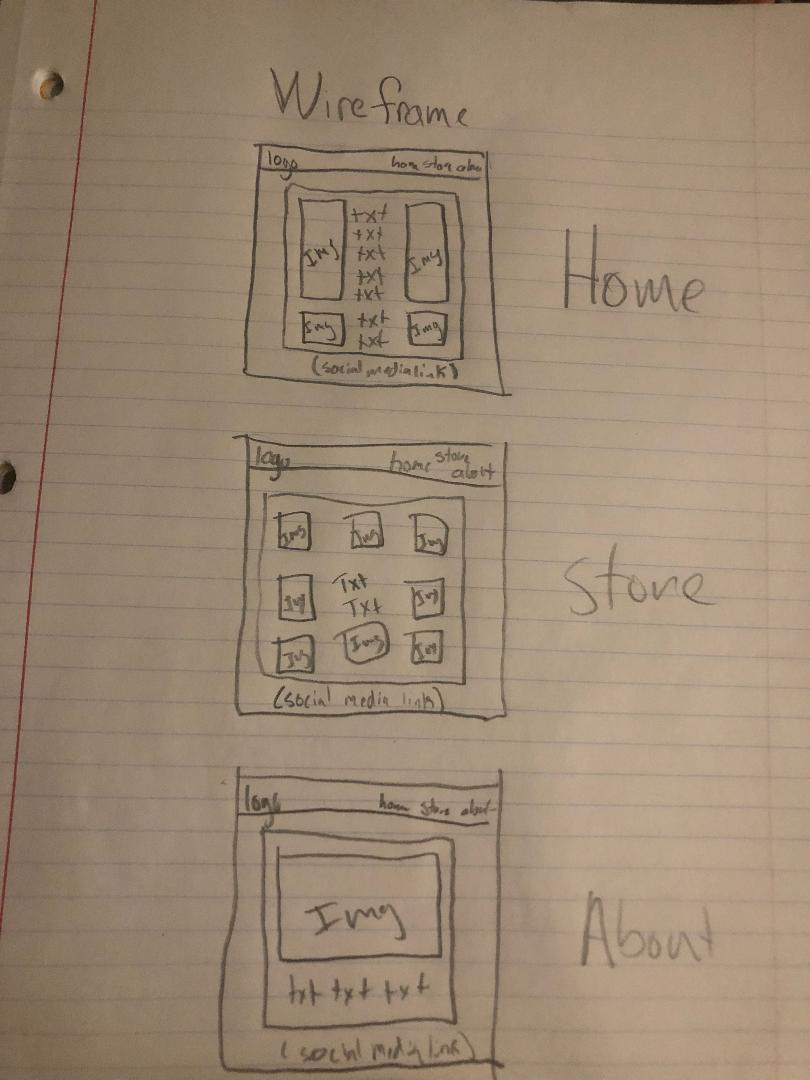 Wireframe
logo home store about
txt
txt
Img txt Img
txt
txt
Img txt Img
txt
(social media link)
Home
logo home store about
Img Img Img
Img Txt Img
Txt
Img Img Img
(social media link)
Store
logo home store about
Img
txt txt txt
(social media link)
About